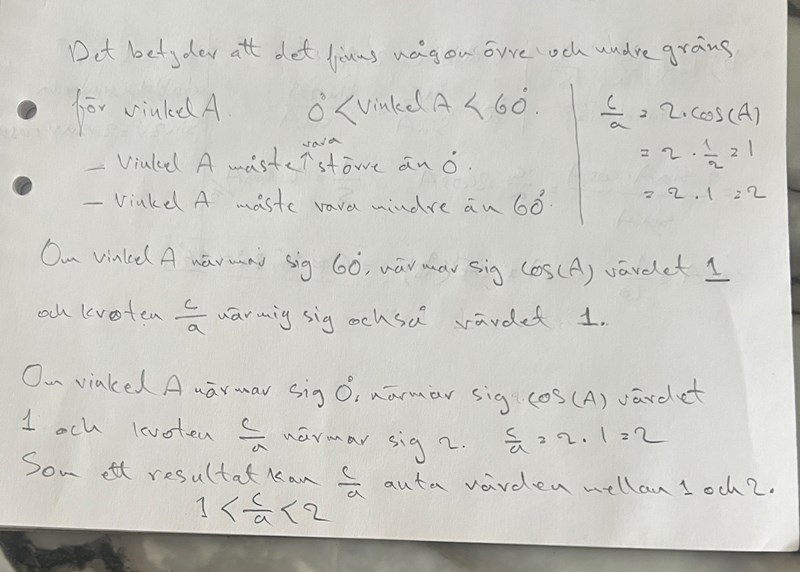 Det betyder att det finns någon övre och undre gräns
för vinkel A. 0° < vinkel A < 60°.
- Vinkel A måste vara större än 0°.
- Vinkel A måste vara mindre än 60°.
c/a = 2·cos(A)
= 2 · 1/2 = 1
= 2 · 1 = 2
Om vinkel A närmar sig 60°, närmar sig cos(A) värdet 1
och kvoten c/a närmig sig också värdet 1.
Om vinkel A närmar sig 0°, närmar sig cos(A) värdet
1 och kvoten c/a närmar sig 2. c/a = 2 · 1 = 2
Som ett resultat kan c/a anta värden mellan 1 och 2.
1 < c/a < 2